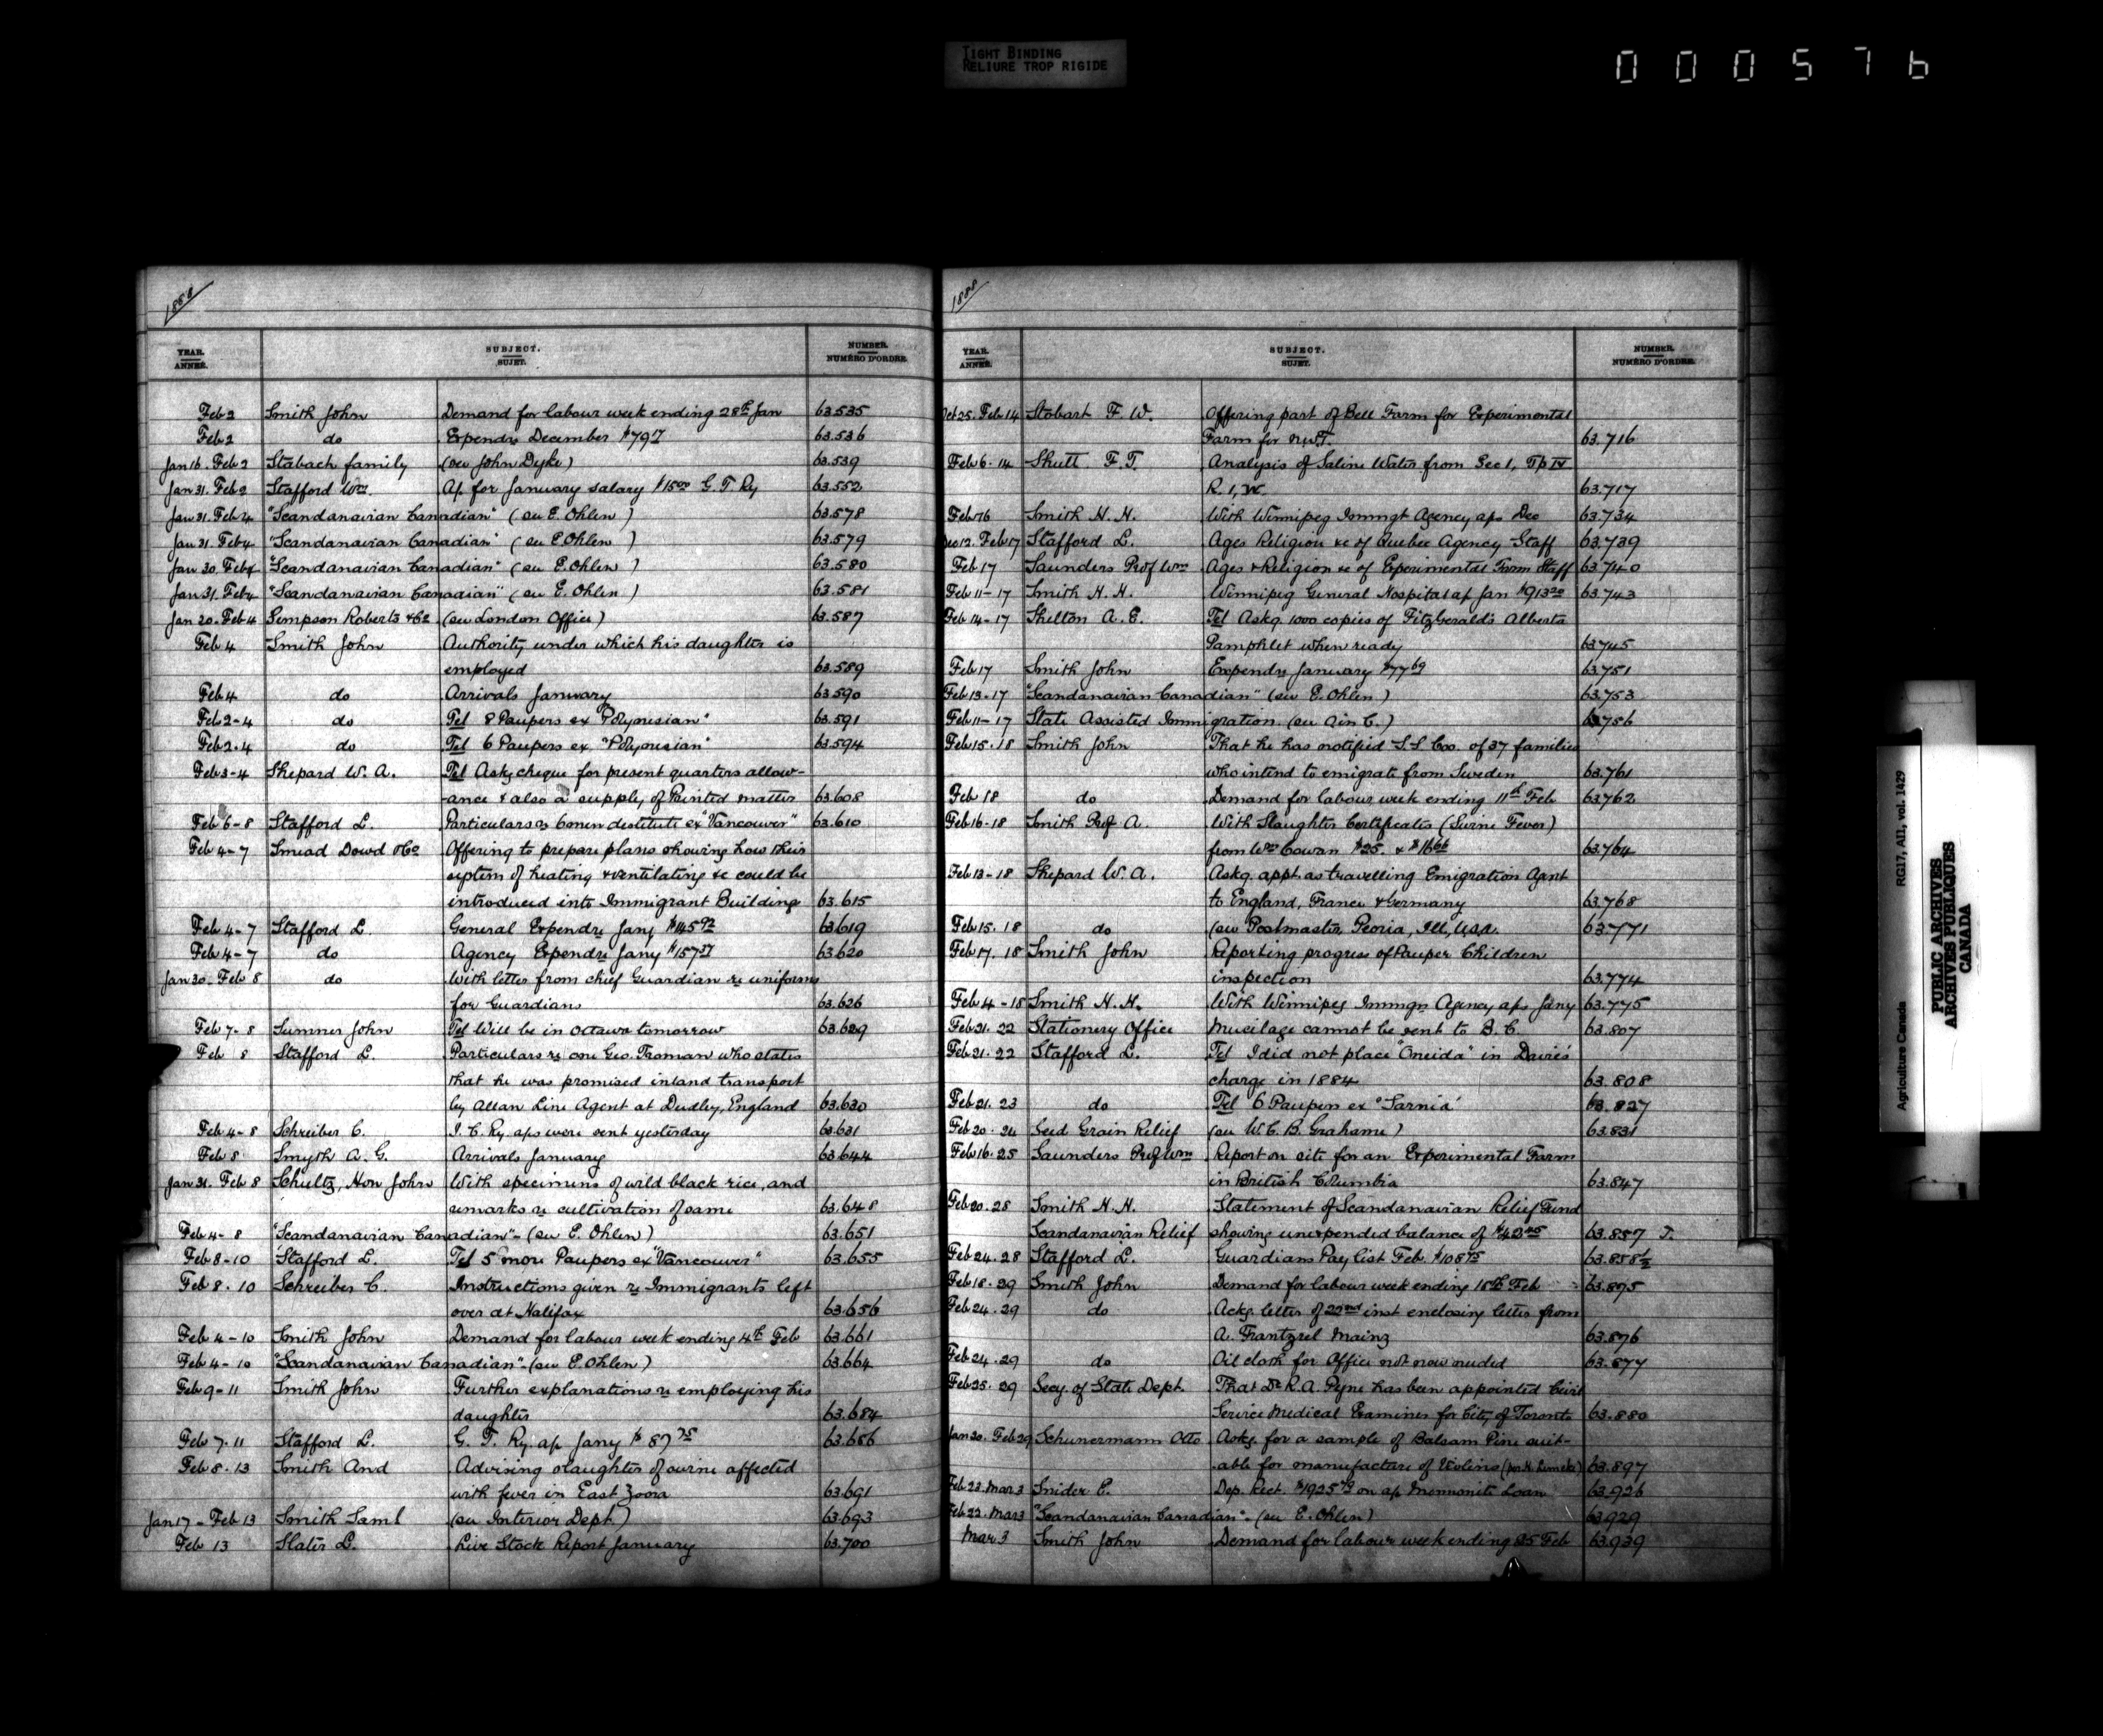 TIGHT BINDING
RELIURE TROP RIGIDE
000576
1888
YEAR. ANNÉE. SUBJECT. SUJET. NUMBER. NUMÉRO D'ORDRE.
Feb 2 Smith John Demand for labour week ending 28th Jan 63.535
Feb 2 do Expendre December $79 17 63.536
Jan 16. Feb 2 Stabach family (see John Dyke) 63.539
Jan 31. Feb 2 Stafford Wm. Ap. for January salary $15 00 G. T Ry 63.552
Jan 31. Feb 4 "Scandanavian Canadian" (see E. Ohlen) 63.578
Jan 31. Feb 4 "Scandanavian Canadian" (see E. Ohlen) 63.579
Jan 30. Feb 4 "Scandanavian Canadian" (see E. Ohlen) 63.580
Jan 31. Feb 4 "Scandanavian Canadian" (see E. Ohlen) 63.581
Jan 20. Feb 4 Simpson Roberts & Co (see London Office) 63.587
Feb 4 Smith John Authority under which his daughter is
employed 63.589
Feb 4 do Arrivals January 63.590
Feb 2-4 do Tel 8 Paupers ex "Polynesian" 63.591
Feb 2-4 do Tel 6 Paupers ex. "Polynesian" 63.594
Feb 3-4 Shepard W. A. Tel Askg cheque for present quarters allow-
-ance & also a supply of Printed matter 63.608
Feb 6-8 Stafford L. Particulars re 6 men destitute ex "Vancouver" 63.610
Feb 4-7 Smead Dowd & Co Offering to prepare plans showing how their
system of heating & ventilating &c could be
introduced into Immigrant Building 63.615
Feb 4-7 Stafford L. General Expendre Jany $145 92 63.619
Feb 4-7 do Agency Expendre Jany $157 37 63.620
Jan 30. Feb 8 do With letter from chief Guardian re uniforms
for Guardians 63.626
Feb 7-8 Sumner John Tel Will be in Ottawa tomorrow 63.629
Feb 8 Stafford L. Particulars re one Geo. Troman who states
that he was promised inland transport
by Allan Line Agent at Dudley, England 63.630
Feb 4-8 Schreiber C. I. C. Ry. aps were sent yesterday 63.631
Feb 8 Smyth A. G. Arrivals January 63.644
Jan 31. Feb 8 Schultz, Hon John With specimens of wild black rice, and
remarks re cultivation of same 63.648
Feb 4-8 "Scandanavian Canadian" - (see E. Ohlen) 63.651
Feb 8-10 Stafford L. Tel 5 more Paupers ex "Vancouver" 63.655
Feb 8. 10 Schreiber C. Instructions given re Immigrants left
over at Halifax 63.656
Feb 4-10 Smith John Demand for labour week ending 4th Feb 63.661
Feb 4-10 "Scandanavian Canadian" - (see E. Ohlen) 63.664
Feb 9-11 Smith John Further explanations re employing his
daughter 63.684
Feb 7. 11 Stafford L. G. T. Ry. ap Jany $ 87 75 63.686
Feb 8. 13 Smith And Advising slaughter of swine affected
with fever in East Zorra 63.691
Jan 17 - Feb 13 Smith Saml (see Interior Dept) 63.693
Feb 13 Slater L. Live Stock Report January 63.700
1888
YEAR. ANNÉE. SUBJECT. SUJET. NUMBER. NUMÉRO D'ORDRE.
Oct 25. Feb 14 Stobart F. W. Offering part of Bell Farm for Experimental
Farm for N.W.T. 63.716
Feb 6. 14 Shutt F. T. Analysis of Saline Water from Sec 1, Tp IV
R. 1, W. 63.717
Feb 16 Smith H. H. With Winnipeg Immgt Agency aps Dec 63.734
Dec 12. Feb 17 Stafford L. Ages Religion &c of Quebec Agency Staff 63.739
Feb 17 Saunders Prof Wm Ages & Religion &c of Experimental Farm Staff 63.740
Feb 11-17 Smith H. H. Winnipeg General Hospital ap Jan $913 20 63.743
Feb 14-17 Skelton A. E. Tel Askg. 1000 copies of FitzGerald's Alberta
Pamphlet when ready 63.745
Feb 17 Smith John Expendre January $77 69 63.751
Feb 13-17 "Scandanavian Canadian" (see E. Ohlen) 63.753
Feb 11-17 State Assisted Immigration. (see Ain C.) 63.756
Feb 15. 18 Smith John That he has notified S.S Coo. of 37 families
who intend to emigrate from Sweden 63.761
Feb 18 do Demand for labour week ending 11th Feb 63.762
Feb 16. 18 Smith Prof A. With Slaughter Certificates (Swine Fever)
from Wm Cowan $25. & $16 66 63.764
Feb 13-18 Shepard W. A. Askg. appt. as travelling Emigration Agent
to England, France & Germany 63.768
Feb 15. 18 do (see Postmaster Peoria, Ill, U.S.A. 63.771
Feb 17. 18 Smith John Reporting progress of Pauper Children
inspection 63.774
Feb 4-18 Smith H. H. With Winnipeg Immgn Agency aps Jany 63.775
Feb 21. 22 Stationery Office Mucilage cannot be sent to B. C. 63.807
Feb 21. 22 Stafford L. Tel I did not place "Oneida" in Davies
charge in 1884 63.808
Feb 21. 23 do Tel 6 Paupers ex "Sarnia" 63.827
Feb 20. 24 Seed Grain Relief (see W. C. B. Grahame) 63.831
Feb 16. 25 Saunders Prof Wm Report on site for an Experimental Farm
in British Columbia 63.847
Feb 20. 28 Smith H. H. Statement of Scandanavian Relief Fund
Scandanavian Relief showing unexpended balance of 63.857 T.
Feb 24. 28 Stafford L. Guardians Pay list Feb. $108 75 63.858½
Feb 18. 29 Smith John Demand for labour week ending 18th Feb 63.875
Feb 24. 29 do Ackg. letter of 22nd inst enclosing letter from
A. Frantzrel Mainz 63.876
Feb 24. 29 do Oil cloth for Office not now needed 63.877
Feb 25. 29 Secy. of State Dept. That Dr R. A. Pyne has been appointed Civil
Service Medical Examiner for City of Toronto 63.880
Jan 30. Feb 29 Schunermann Otto Askg. for a sample of Balsam Pine suit-
able for manufacture of Violins (per H. ) 63.897
Feb 23. Mar 3 Snider E. Dep. Rect. on ap Mennonite Loan 63.926
Feb 22. Mar 3 "Scandanavian Canadian" - (see E. Ohlen) 63.929
Mar 3 Smith John Demand for labour week ending 25 Feb 63.939
Agriculture Canada RG17, AII, vol. 1429
PUBLIC ARCHIVES
ARCHIVES PUBLIQUES
CANADA